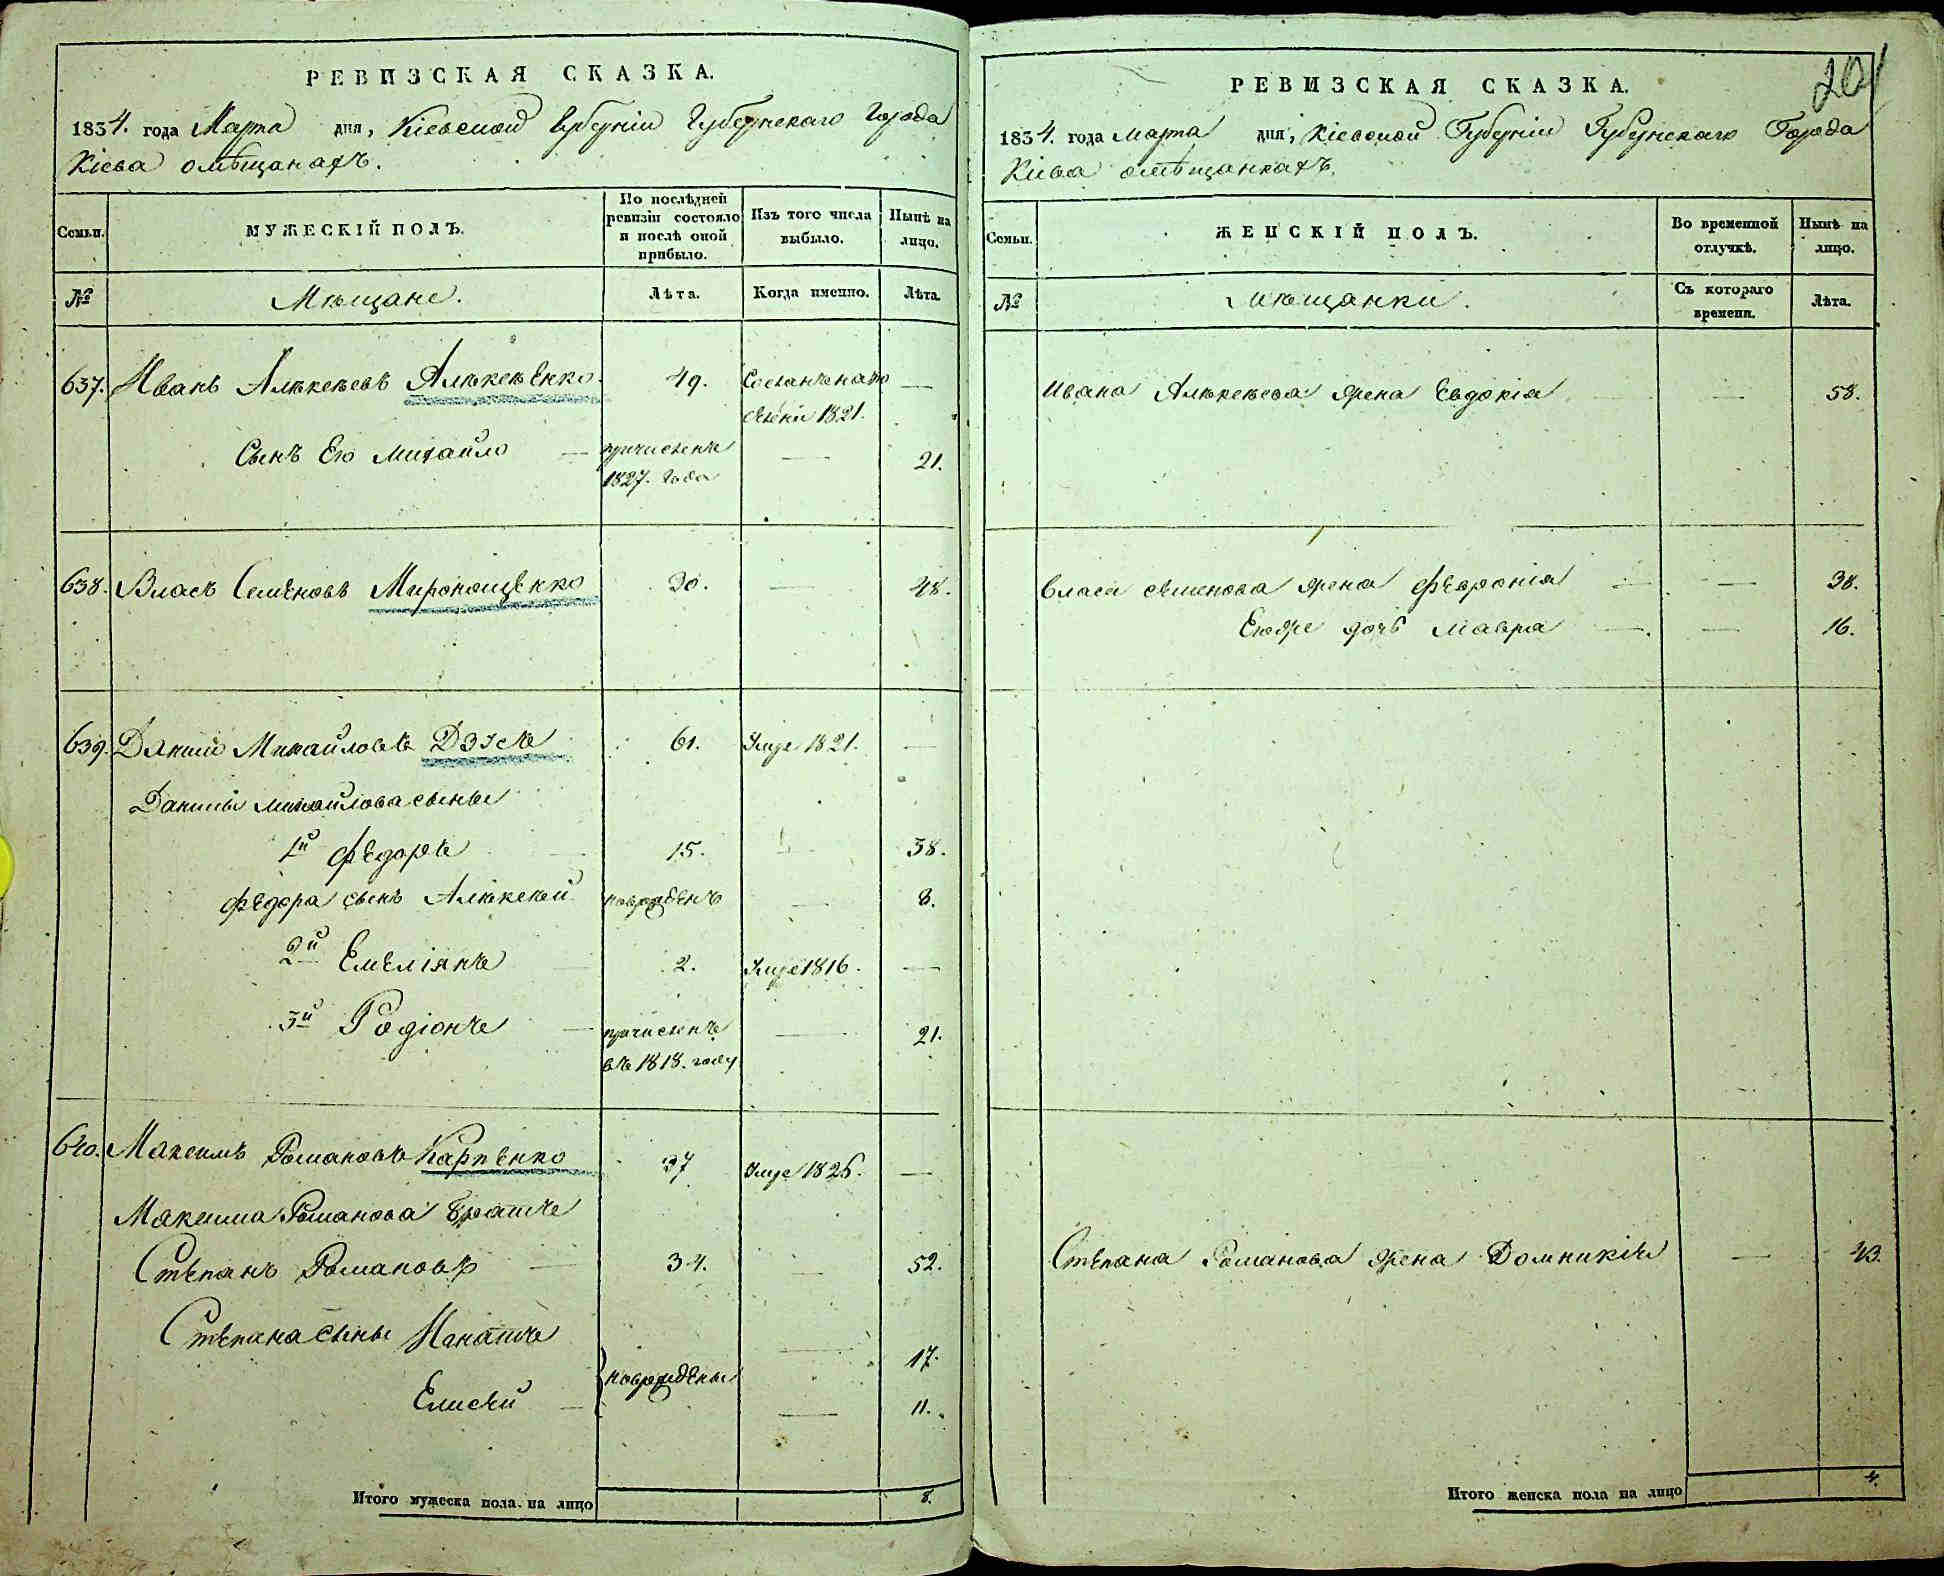 РЕВИЗСКАЯ СКАЗКА.
1834. года Марта дня, Кіевской Губерніи Губернскаго Города
Кіева о мѣщанахъ.
Семьи.
МУЖЕСКІЙ ПОЛЪ.
По послѣдней
ревизіи состояло
и послѣ оной
прибыло.
Изъ того числа
выбыло.
Нынѣ на
лицо.
№
Мѣщане.
Лѣта.
Когда именно.
Лѣта.
637. Иванъ Алѣксѣевъ Алѣксѣенко 49. —
1821.
Сынъ Его Михайло — причисленъ — 21.
1827. года
638. Власъ Семеновъ Мирономщенко 30. — 48.
639. Данило Михайловъ Дзюсъ 61. Умре 1821. —
Данилы Михайлова сыны
1й Федоръ 15. — 38.
Федора сынъ Алѣксѣй новорожденъ — 8.
2й Емеліянъ 2. Умре 1816. —
3й Родіонъ — причисленъ — 21.
въ 1818. году
640. Максимъ Романовъ Карпенко 37 Умре 1826. —
Максима Романова братъ
Степанъ Романовъ — 34. — 52.
Степана сыны Игнатъ — 17.
новорождены
Елисѣй — — 11.
Итого мужеска пола на лицо 8.
201
РЕВИЗСКАЯ СКАЗКА.
1834. года Марта дня, Кіевской Губерніи Губернскаго Города
Кіева о мѣщанкахъ.
Семьи.
ЖЕНСКІЙ ПОЛЪ.
Во временной
отлучкѣ.
Нынѣ на
лицо.
№
Мѣщанки.
Съ котораго
времени.
Лѣта.
Ивана Алѣксѣева жена Евдокія — — 58.
Власа Семенова жена Февронія — — 38.
Егоже дочь Мавра — — 16.
Степана Романова жена Домникія — 43.
Итого женска пола на лицо 4.